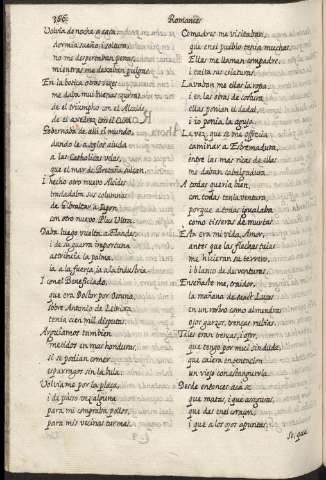 386
Romances
Volvia de noche a casa
dormia sueño, i soltura
no me despertaban penas,
mientras me dexaban pulgas.
En la botica otras veces
me daba mui buenas zurras
de el triumpho con el Alcaide,
de el axedrez con el Cura.
Gobernaba de alli el mundo,
dando le a soplos aiuda
a las Catholicas velas,
que el mar de Bretaña sulcan.
I hecho otro nuevo Alcides
trasladaba sus columnas
de Gibraltar a Japon
con otro nuevo Plus Ultra.
Daba luego vuelta a Flandes,
i de su guerra importuna
atribuia la palma,
ia a la fuerza, ia a la industria
I con el Beneficiado,
que era Doctor por Osuna,
sobre Antonio de Lebrixa
tenia cien mil disputas.
Arguiamos tambien
metidos en mas honduras,
si se podian comer
esparragos sin la bula.
Volvia me por la plaza,
i de paso vez alguna
para mi compraba pollos,
para mis vecinas turmas.
Comadres me visitaban,
que en el pueblo tenia muchas,
Ellas me llaman compadre,
i taita sus criaturas.
Lavaban me ellas la ropa,
i en las obras de costura
ellas ponian el dedal,
i io ponia la aguja.
La vez, que se me offrecia
caminar a Estremadura,
entre las mas ricas de ellas
me daban cabalgadura.
A todas queria bien,
con todas tenia ventura,
porque a todas igualaba
como tisseras de murtas.
Esta era mi vida, Amor,
antes que las flechas tuias
me hicieran su terrero,
i blanco de desventuras.
Enseñaste me, traidor,
la mañana de sanct Lucas
en un rostro como almendras
ojos garzos, trenzas rubias.
Tales eran trenzas, i ojos,
que tengo por mui sin duda,
que caiera en tentacion
un viejo con estangurria.
Desde entonces acá sé
que matas, i que aseguras,
que das en el corazon,
i que a los ojos apuntas;
Sé, que